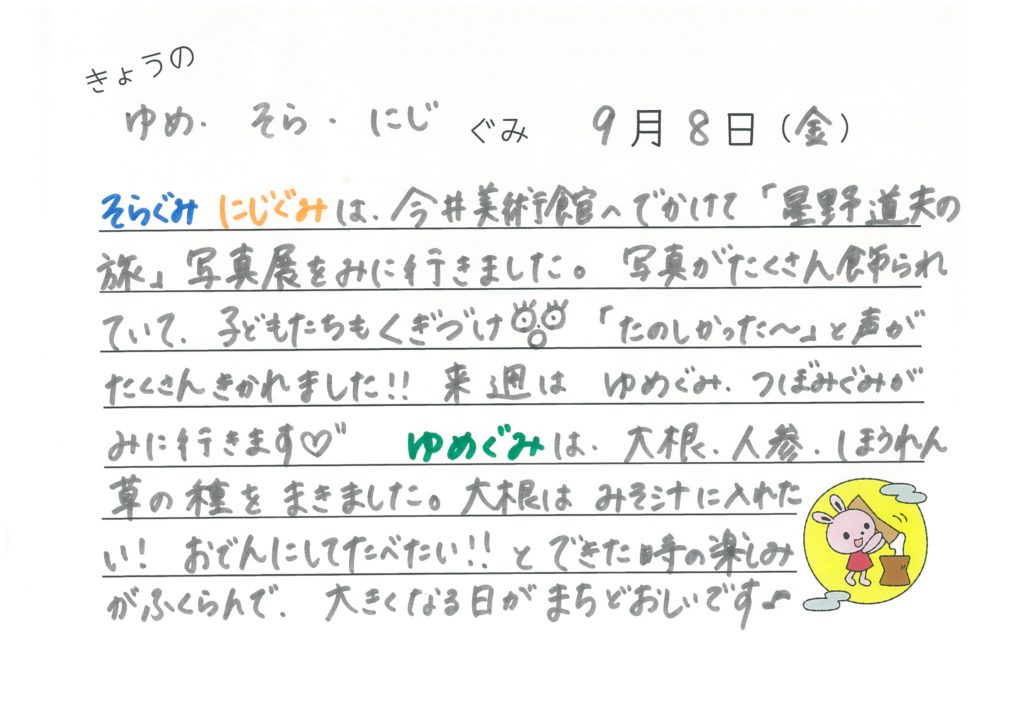 きょうの
ゆめ・そら・にじ ぐみ 9月8日(金)
そらぐみ にじぐみは、今井美術館へでかけて「星野道夫の
旅」写真展をみに行きました。写真がたくさん飾られ
ていて、子どもたちもくぎづけ「たのしかった〜」と声が
たくさんきかれました!! 来週は ゆめぐみ、つぼみぐみが
みに行きます♡゛ ゆめぐみは、大根、人参、ほうれん
草の種をまきました。大根は みそ汁に入れた
い! おでんにしてたべたい!! と できた時の楽しみ
がふくらんで、大きくなる日が まちどおしいです♪